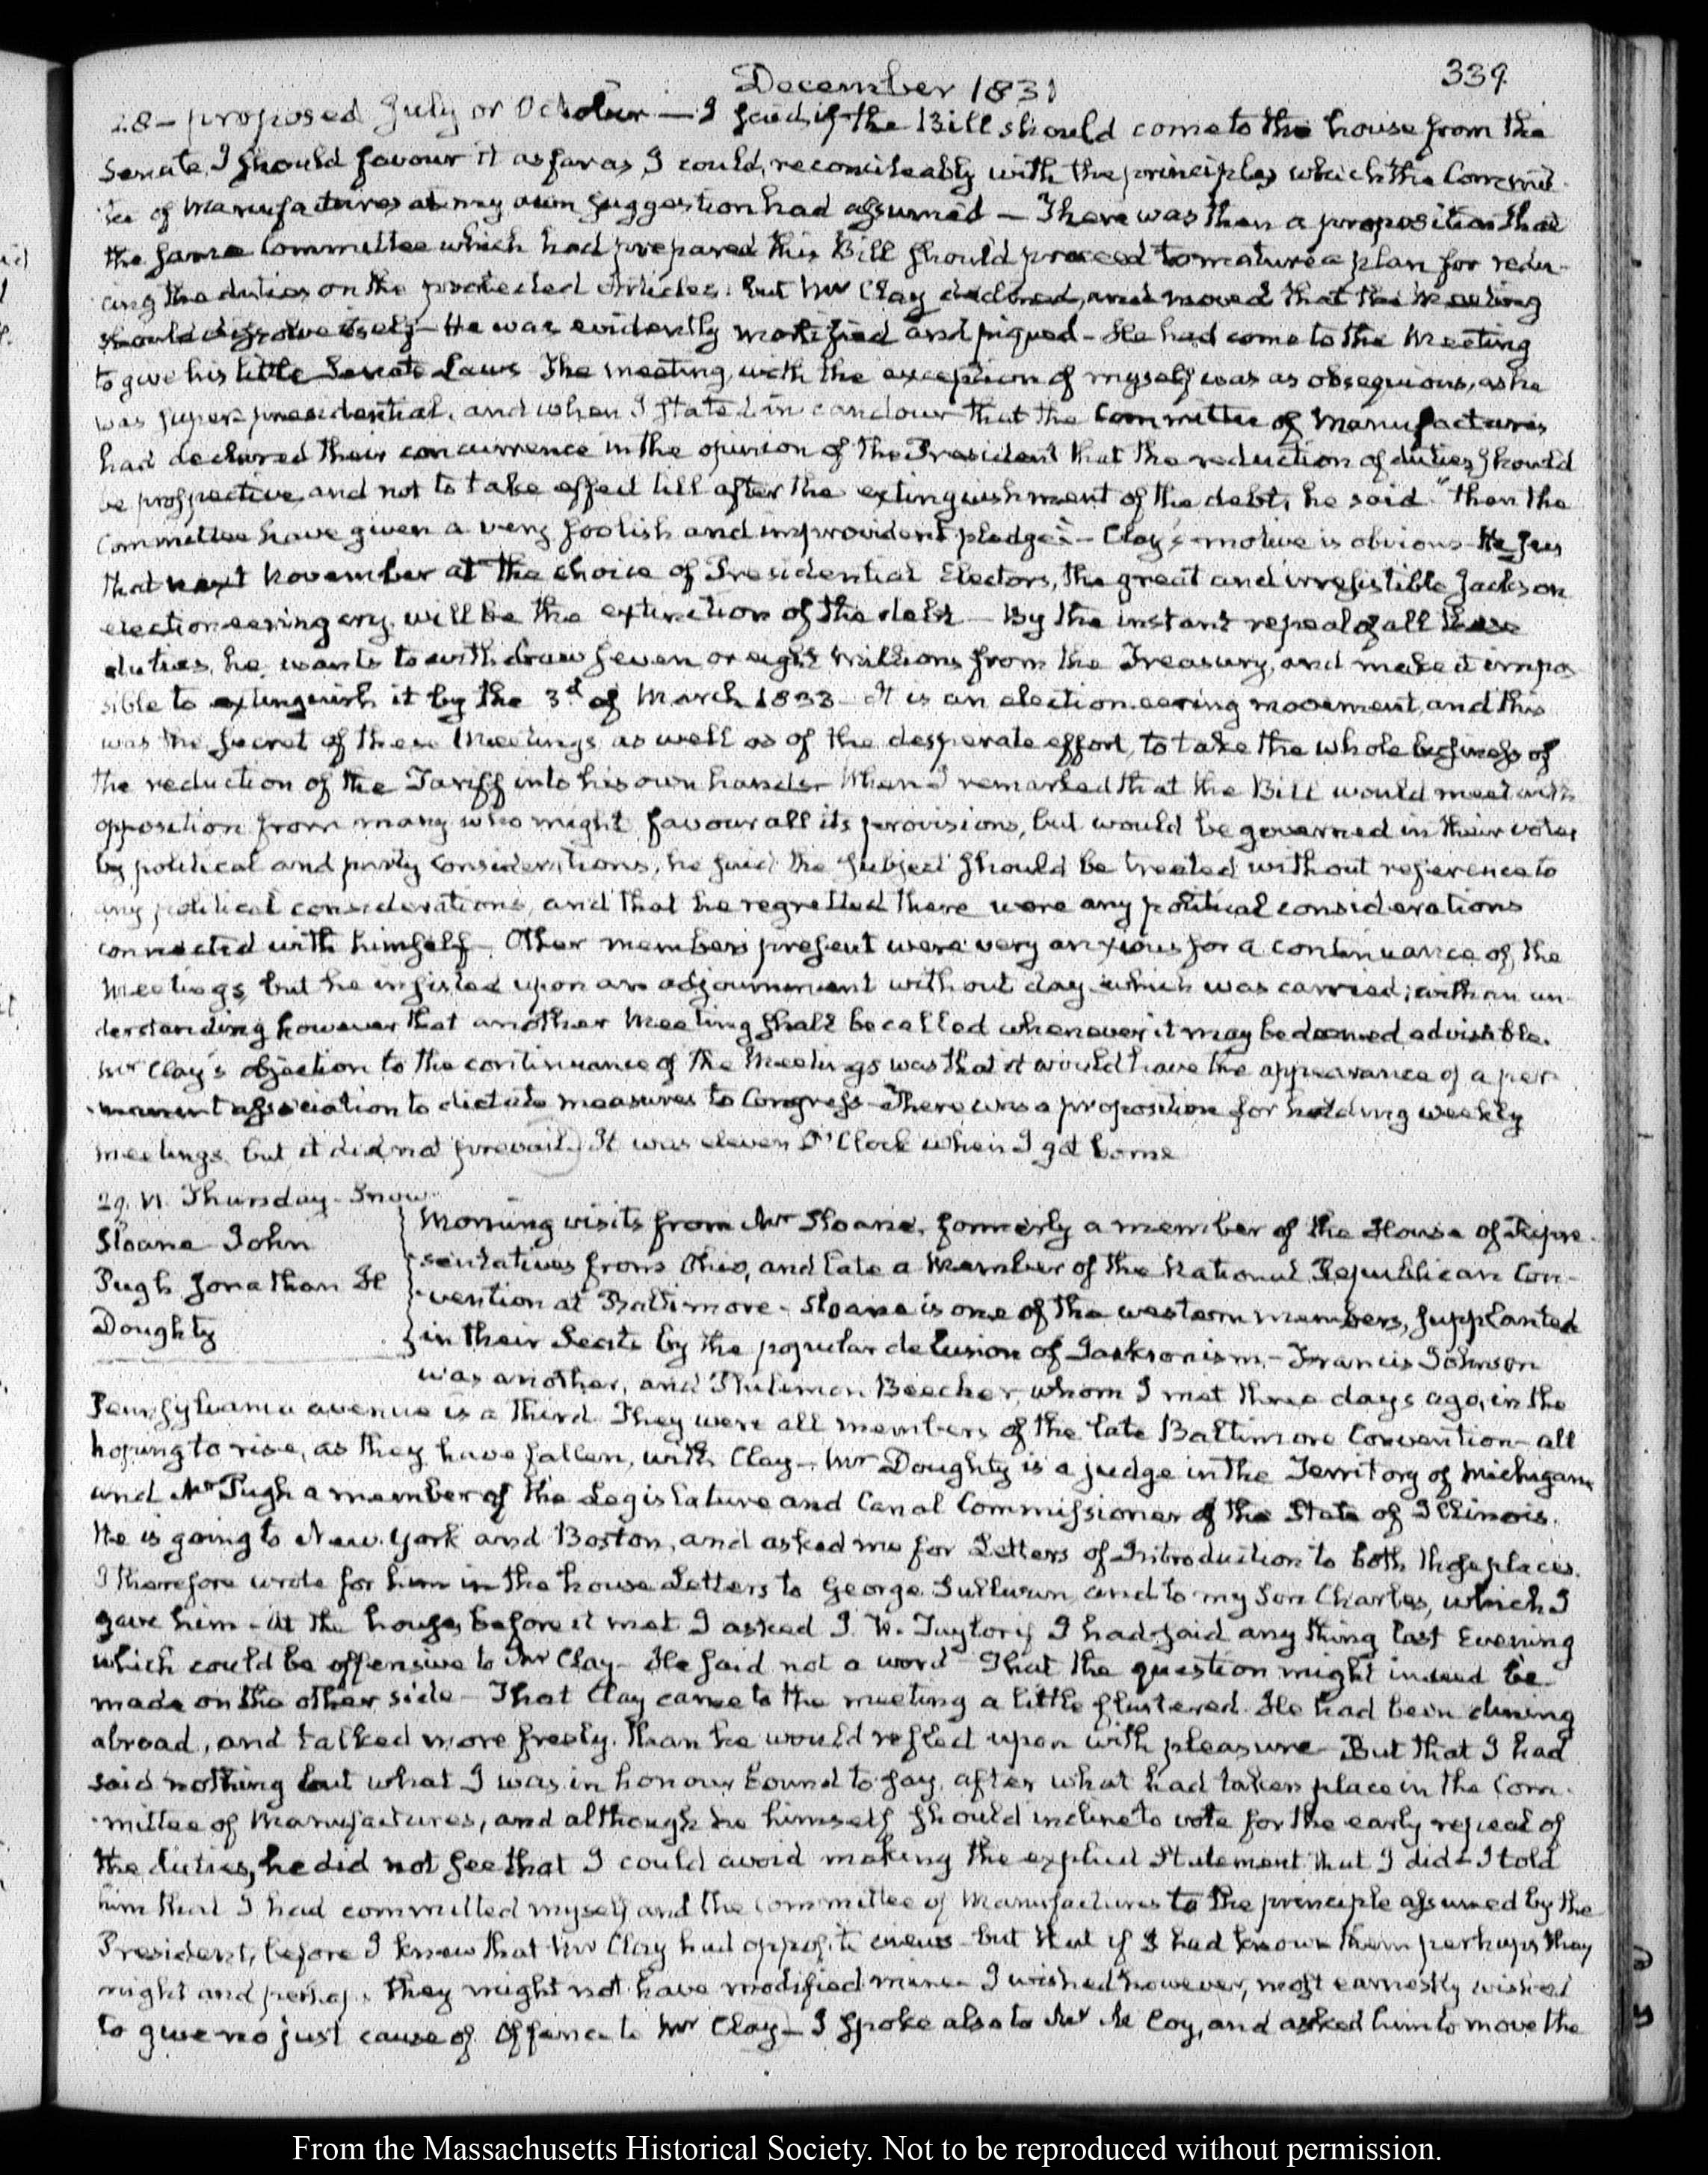 339.
December 1831
28 — proposed July or October — I said if the Bill should come to the house from the
Senate, I should favour it as far as I could, reconcileably with the principles which the Commit-
tee of Manufactures at my own suggestion had assumed — There was then a proposition that
the same Committee which had prepared this Bill should proceed to mature a plan for redu-
cing the duties on the protected Articles. but Mr Clay declined, and moved that the Meeting
should dissolve itself — He was evidently mortified and piqued — He had come to the Meeting
to give his little Senate Laws The meeting, with the exception of myself was as obsequious, as he
was super-presidential. and when I stated in candour that the Committee of Manufactures
had declared their concurrence in the opinion of the President that the reduction of duties should
be prospective, and not to take effect till after the extinguishment of the debt, he said "then the
Committee have given a very foolish and improvident pledge" — Clay's motive is obvious — He sees
that next November at the choice of Presidential Electors, the great and irresistible Jackson
electioneering cry, will be the extinction of the debt — By the instant repeal of all these
duties, he wants to withdraw seven or eight Millions from the Treasury, and make it impos-
sible to extinguish it by the 3d of March 1833 — It is an electioneering movement, and this
was the secret of these Meetings as well as of the desperate effort, to take the whole business of
the reduction of the Tariff into his own hands — When I remarked that the Bill would meet with
opposition from many who might favour all its provisions, but would be governed in their votes
by political and party considerations, he said the subject should be treated without reference to
any political considerations, and that he regretted there were any political considerations
connected with himself — Other members present were very anxious for a continuance of the
Meetings, but he insisted upon an adjournment without day which was carried; with an un-
derstanding however that another Meeting shall be called whenever it may be deemed advisable.
Mr Clay's objection to the continuance of the Meetings was that it would have the appearance of a per-
manent association to dictate measures to Congress — There was a proposition for holding weekly
meetings, but it did not prevail. It was eleven O'Clock when I got home
29. VI. Thursday — Snow.
Sloane John
Pugh Jonathan H
Doughty
Morning visits from Mr Sloane, formerly a member of the House of Repre-
sentatives from Ohio, and late a Member of the National Republican Con-
vention at Baltimore — Sloane is one of the western members, supplanted
in their Seats by the popular delusion of Jacksonism — Francis Johnson
was another, and Philemon Beecher, whom I met three days ago, in the
Pennsylvania avenue is a third. They were all members of the late Baltimore Convention — all
hoping to rise, as they have fallen, with Clay — Mr Doughty is a judge in the Territory of Michigan
and Mr Pugh a member of the Legislature and Canal Commissioner of the State of Illinois.
He is going to New-York and Boston, and asked me for Letters of Introduction to both those places.
I therefore wrote for him in the house Letters to George Sullivan, and to my Son Charles, which I
gave him — At the house, before it met I asked J. W. Taylor if I had said any thing last Evening
which could be offensive to Mr Clay — He said not a word — That the question might indeed be
made on the other side — That Clay came to the meeting a little flustered. He had been dining
abroad, and talked more freely, than he would reflect upon with pleasure — But that I had
said nothing but what I was in honour bound to say, after what had taken place in the Com-
mittee of Manufactures, and although he himself should incline to vote for the early repeal of
the duties, he did not see that I could avoid making the explicit Statement that I did — I told
him that I had committed myself and the Committee of Manufactures to the principle assumed by the
President, before I knew that Mr Clay had opposite views — but that if I had known them perhaps they
might and perhaps they might not have modified mine — I wished however, most earnestly wished
to give no just cause of Offence to Mr Clay — I spoke also to Mr McCoy, and asked him to move the
From the Massachusetts Historical Society. Not to be reproduced without permission.